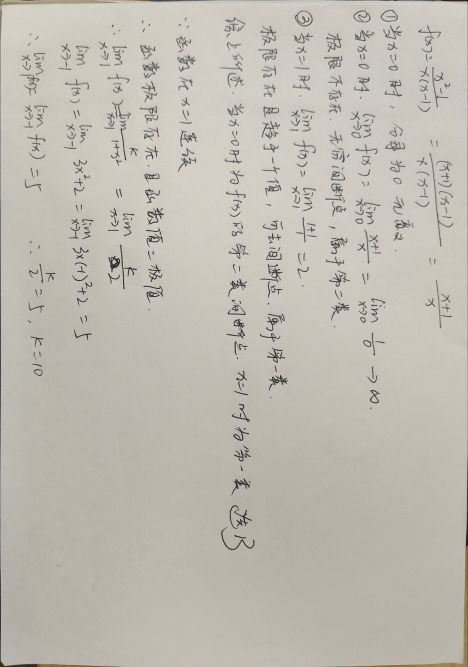 f(x)= x²-1/x(x-1) = (x+1)(x-1)/x(x-1) = x+1/x
① 当x=0时，分母为0 无意义.
② 当x=0时. lim x→0 f(x)= lim x→0 x+1/x = lim x→0 1/0 → ∞.
极限不存在 无穷间断点，属于第二类.
③ 当x=1时. lim x→1 f(x)= lim x→1 1+1/1 = 2.
极限存在且趋于一个值，可去间断点. 属于第一类.
综上所述. 当x=0时为f(x)的第二类间断点. x=1时为第一类 选B
∵ 函数在x=1连续
∴ 函数极限存在. 且函数值=极值.
∴ lim x→1 f(x)= lim x→1 k/1+x² = lim x→1 k/2
lim x→-1 f(x)= lim x→-1 3x²+2 = lim x→-1 3×(-1)²+2 = 5
∴ lim x→-1 f(x)= 5 ∴ k/2 = 5, k=10